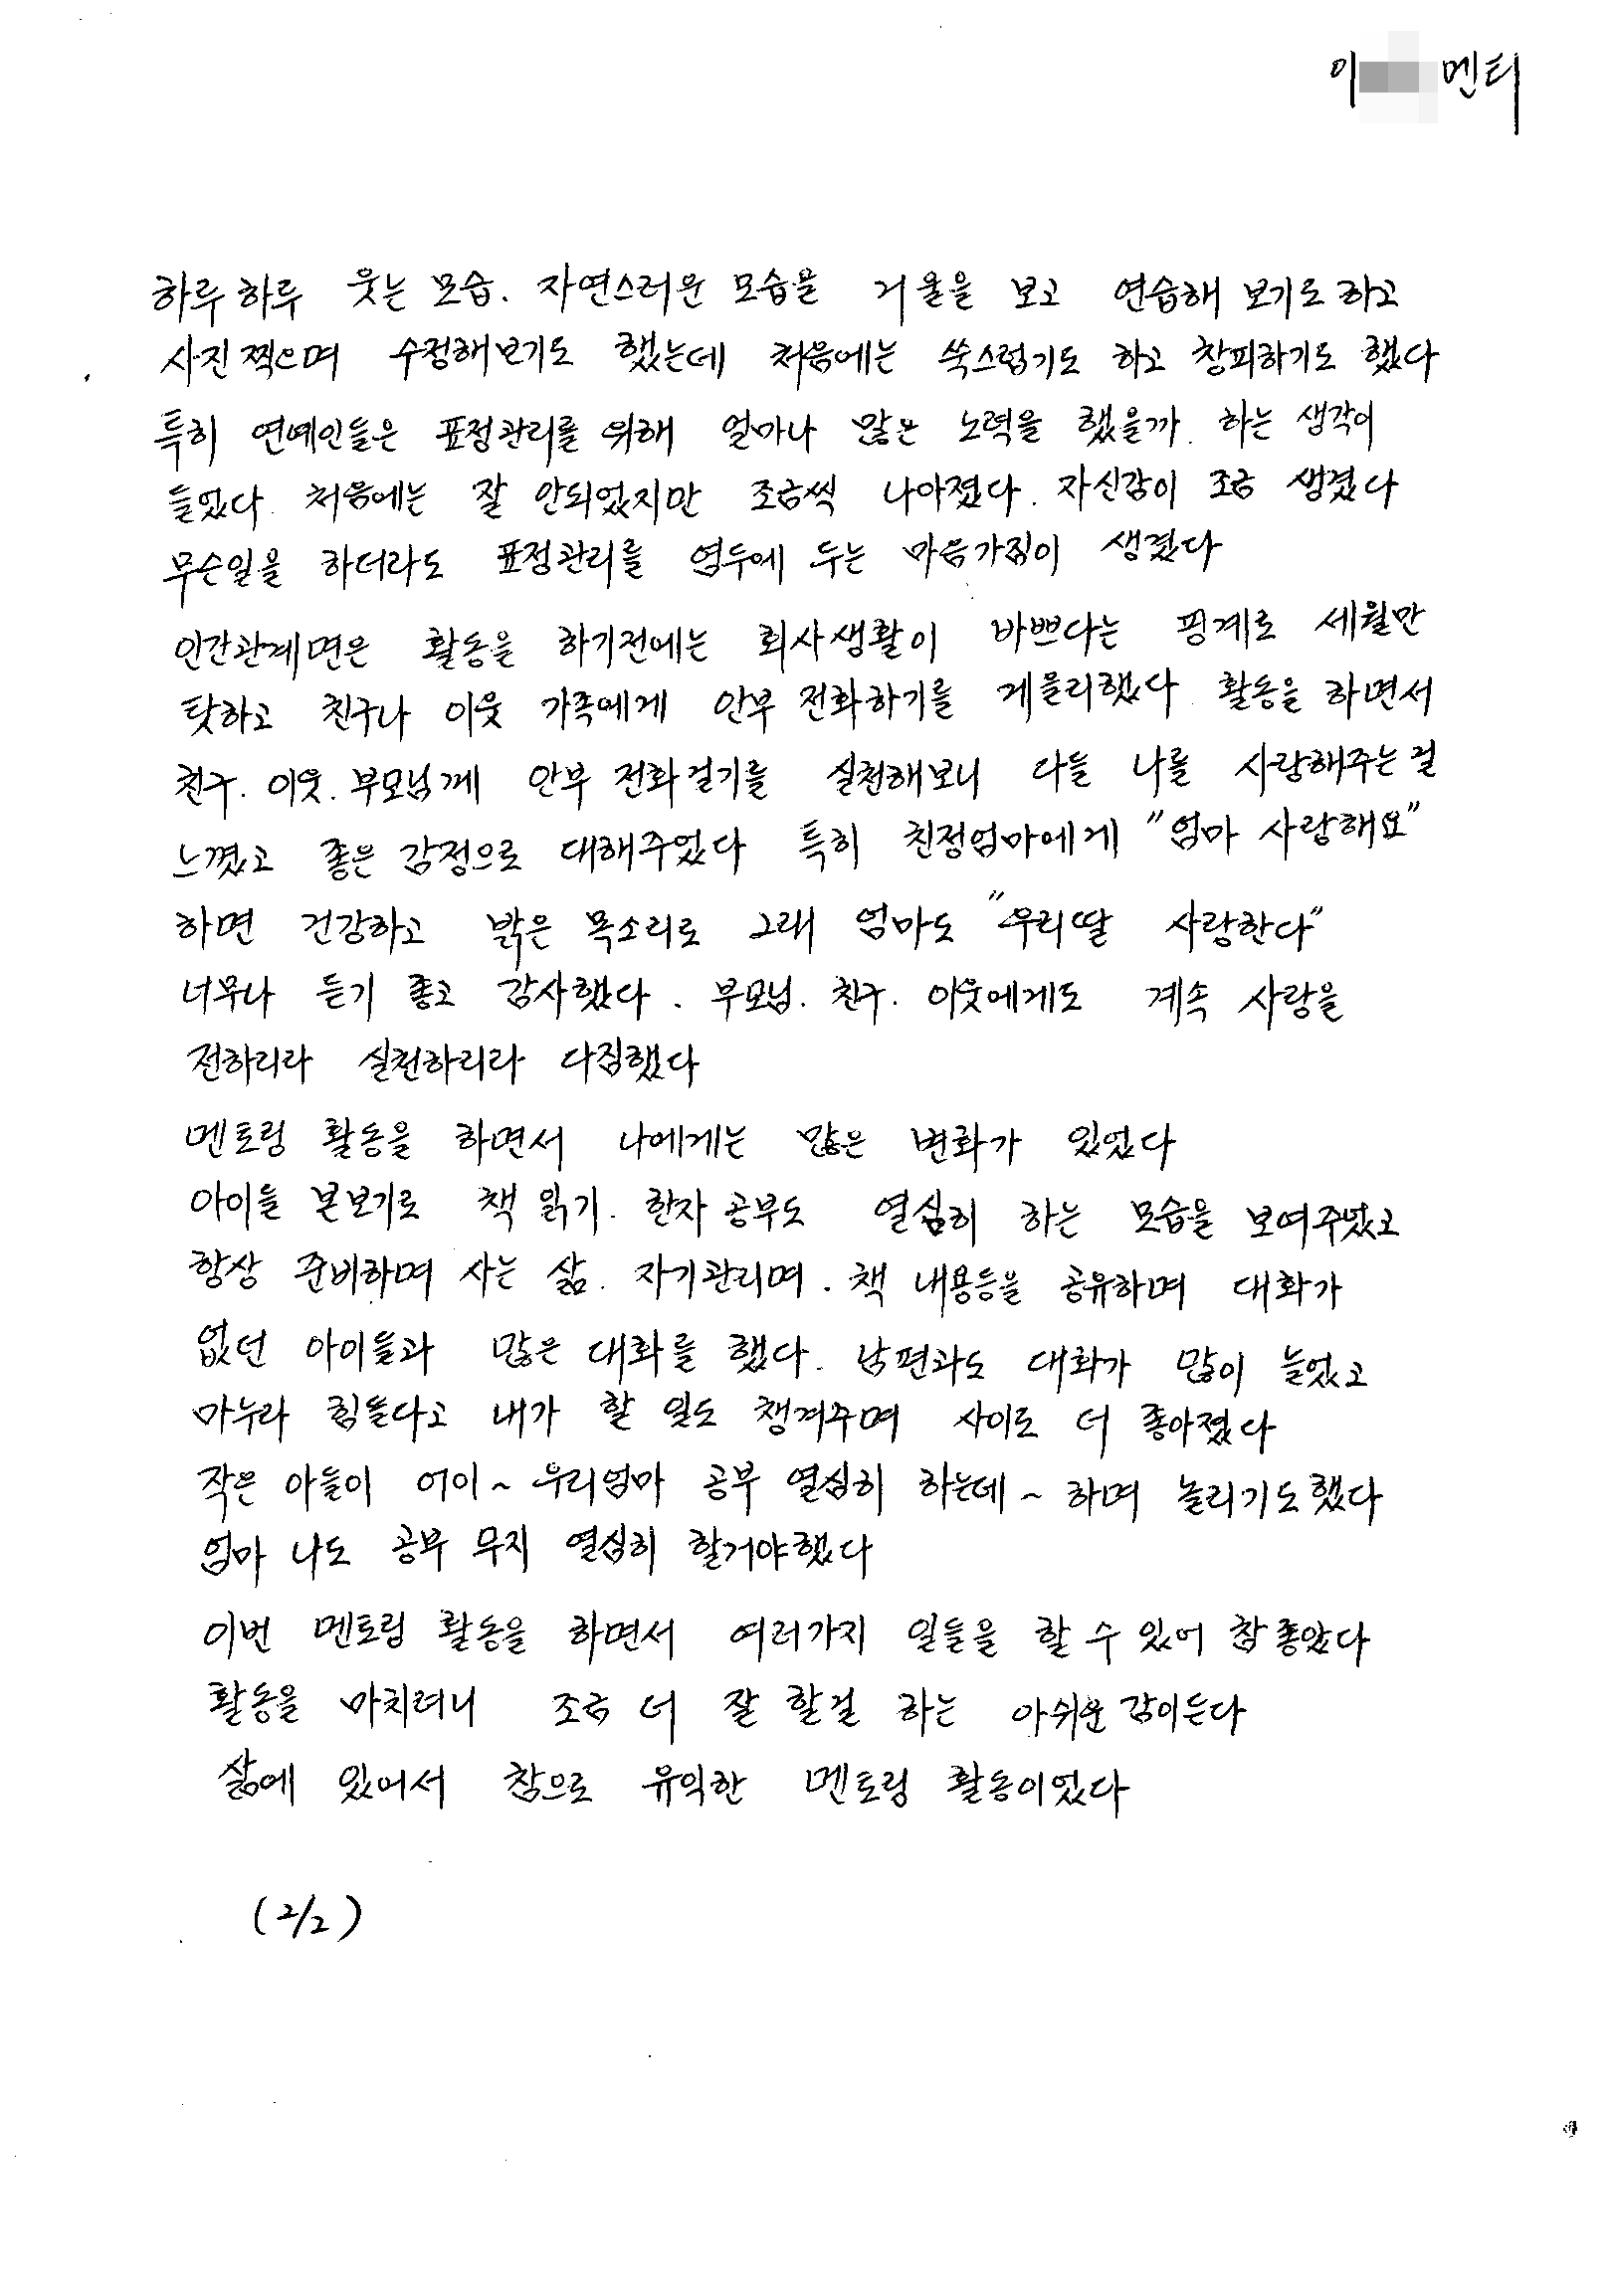 이 멘티
하루하루 웃는 모습. 자연스러운 모습을 거울을 보고 연습해 보기도 하고
사진 찍으며 수정해보기도 했는데 처음에는 쑥스럽기도 하고 창피하기도 했다
특히 연예인들은 표정관리를 위해 얼마나 많은 노력을 했을까. 하는 생각이
들었다. 처음에는 잘 안되었지만 조금씩 나아졌다. 자신감이 조금 생겼다
무슨일을 하더라도 표정관리를 염두에 두는 마음가짐이 생겼다
인간관계면은 활동을 하기전에는 회사생활이 바쁘다는 핑계로 세월만
탓하고 친구나 이웃 가족에게 안부 전화하기를 게을리했다 활동을 하면서
친구. 이웃. 부모님께 안부 전화걸기를 실천해보니 다들 나를 사랑해주는걸
느꼈고 좋은 감정으로 대해주었다 특히 친정엄마에게 "엄마 사랑해요"
하면 건강하고 밝은 목소리로 그래 엄마도 "우리딸 사랑한다"
너무나 듣기 좋고 감사했다. 부모님. 친구. 이웃에게도 계속 사랑을
전하리라 실천하리라 다짐했다
멘토링 활동을 하면서 나에게는 많은 변화가 있었다
아이들 본보기로 책 읽기. 한자 공부도 열심히 하는 모습을 보여주었고
항상 준비하며 사는 삶. 자기관리며. 책 내용등을 공유하며 대화가
없던 아이들과 많은 대화를 했다. 남편과도 대화가 많이 늘었고
마누라 힘들다고 내가 할 일도 챙겨주며 사이도 더 좋아졌다
작은 아들이 어이~ 우리엄마 공부 열심히 하는데~ 하며 놀리기도했다
엄마 나도 공부 무지 열심히 할거야했다
이번 멘토링 활동을 하면서 여러가지 일들을 할 수 있어 참 좋았다
활동을 마치려니 조금 더 잘 할걸 하는 아쉬운 감이든다
삶에 있어서 참으로 유익한 멘토링 활동이었다
(2/2)